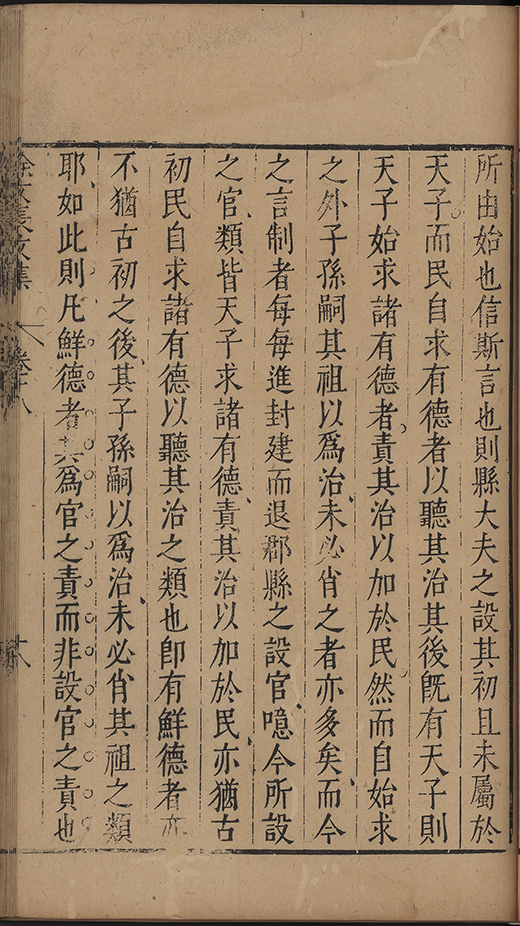 所由始也信斯言也則縣大夫之設其初且未屬於
天子而民自求有德者以聽其治其後旣有天子則
天子始求諸有德者責其治以加於民然而自始求
之外子孫嗣其祖以爲治未必肖之者亦多矣而今
之言制者每每進封建而退郡縣之設官噫今所設
之官類皆天子求諸有德責其治以加於民亦猶古
初民自求諸有德以聽其治之類也卽有鮮德者亦
不猶古初之後其子孫嗣以爲治未必肖其祖之類
耶如此則凡鮮德者其爲官之責而非設官之責也
徐文長文集
卷十八